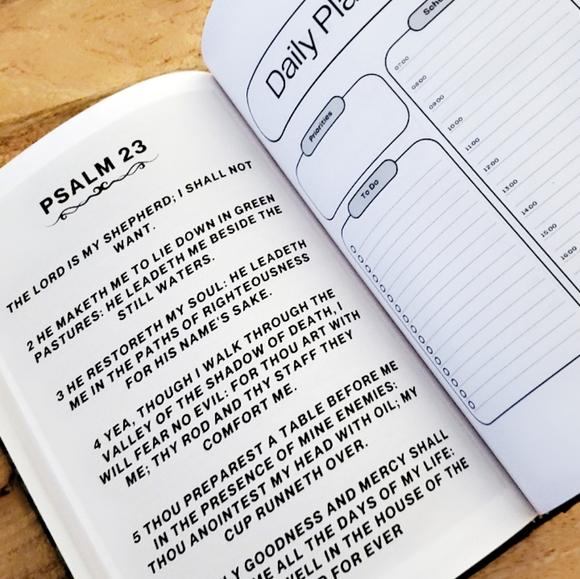 PSALM 23
THE LORD IS MY SHEPHERD; I SHALL NOT
WANT.
2 HE MAKETH ME TO LIE DOWN IN GREEN
PASTURES: HE LEADETH ME BESIDE THE
STILL WATERS.
3 HE RESTORETH MY SOUL: HE LEADETH
ME IN THE PATHS OF RIGHTEOUSNESS
FOR HIS NAME'S SAKE.
4 YEA, THOUGH I WALK THROUGH THE
VALLEY OF THE SHADOW OF DEATH, I
WILL FEAR NO EVIL: FOR THOU ART WITH
ME; THY ROD AND THY STAFF THEY
COMFORT ME.
5 THOU PREPAREST A TABLE BEFORE ME
IN THE PRESENCE OF MINE ENEMIES:
THOU ANOINTEST MY HEAD WITH OIL; MY
CUP RUNNETH OVER.
LY GOODNESS AND MERCY SHALL
ME ALL THE DAYS OF MY LIFE:
WELL IN THE HOUSE OF THE
D FOR EVER
Daily Pla
Priorities
To Do
Sche
07:00
08:00
09:00
10:00
11:00
12:00
13:00
14:00
15:00
16:00